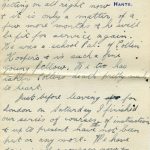 HANTS.
getting on all right now
& it is only a matter of a
few more months & he will
be fit for service again.
He was a school pal of Rollen
Hoskins & is such a fine
young fellow. He too has
taken Rollens death fully
to heart.
Just before leaving for
London on Saturday I finished
our series of courses of instruction
& up to present have not been
put to any work. We have